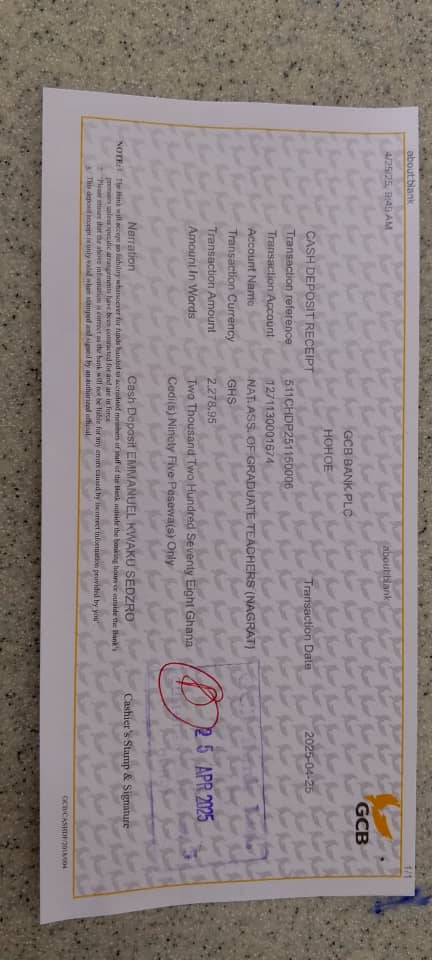 about:blank
about:blank
1/1
4/25/25, 9:49 AM
GCB
GCB BANK PLC
HOHOE
CASH DEPOSIT RECEIPT
Transaction Date 2025-04-25
Transaction reference 511CHDP251150006
Transaction Account 1271130001674
Account Name NAT. ASS. OF GRADUATE TEACHERS (NAGRAT)
Transaction Currency GHS
Transaction Amount 2,278.95
Amount In Words Two Thousand Two Hundred Seventy Eight Ghana
Cedi(s) Ninety Five Pesewa(s) Only
2 5 APR 2025
Narration Cash Deposit EMMANUEL KWAKU SEDZRO
Cashier's Stamp & Signature
NOTE: 1 The Bank will accept no liability whatsoever for funds handed to accredited members of staff of the Bank outside the banking house or outside the Bank's
premises unless specific arrangements have been contracted for and are in force
2 Please ensure that the above information is correct as the bank will not be liable for any errors caused by incorrect information provided by you"
3 This deposit receipt is only valid when stamped and signed by an authorized official.
GCB/CASHDP/2018/004